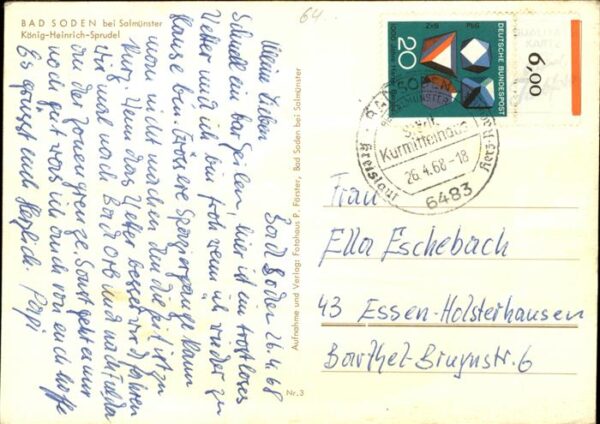 BAD SODEN bei Salmünster
König-Heinrich-Sprudel
64.
Bad Soden 26.4.68
Meine Lieben
Schnell paar Zeilen, hier ist ein trostloses
Wetter und ich bin froh wenn ich wieder zu
Hause bin. Grössere Spaziergänge kann
man nicht machen denn die Zeit ist zu
kurz. Wenn das Wetter besser wird fahren
wir mal nach Bad Orb und nach
an der Zonengrenze. Sonst geht es mir
noch gut was ich auch von euch hoffe
Es grüsst euch herzlich Papi
Aufnahme und Verlag: Fotohaus P. Förster, Bad Soden bei Salmünster
Nr. 3
DEUTSCHE BUNDESPOST
20
6,00
BAD SODEN
Kurmittelhaus
26.4.68-18
6483
Frau
Ella Eschebach
43 Essen-Holsterhausen
Barthel-Bruynstr. 6